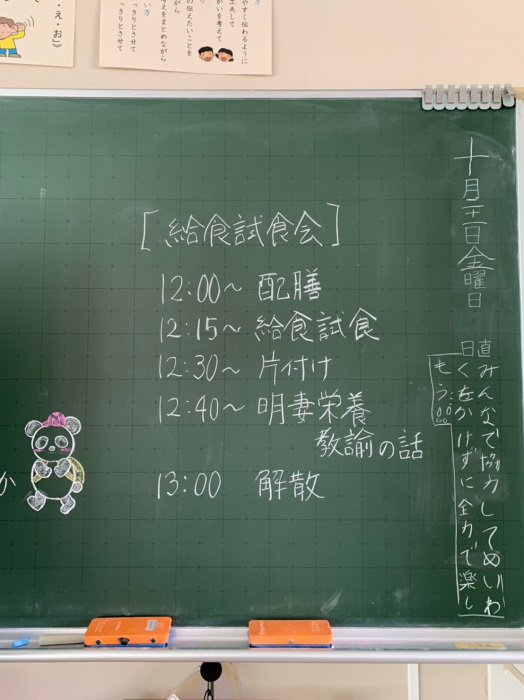 ・え・お》
い方
かいを考えて
工夫して
やすく伝わるように
い方
っきりとさせて
っきりとさせて
考えをまとめながら
の伝えたいことを
[給食試食会]
12:00〜 配膳
12:15〜 給食試食
12:30〜 片付け
12:40〜 明妻栄養
教諭の話
13:00 解散
か
金曜日
日直
みんなで協力してめいわ
くをかけずに全力で楽し
もう